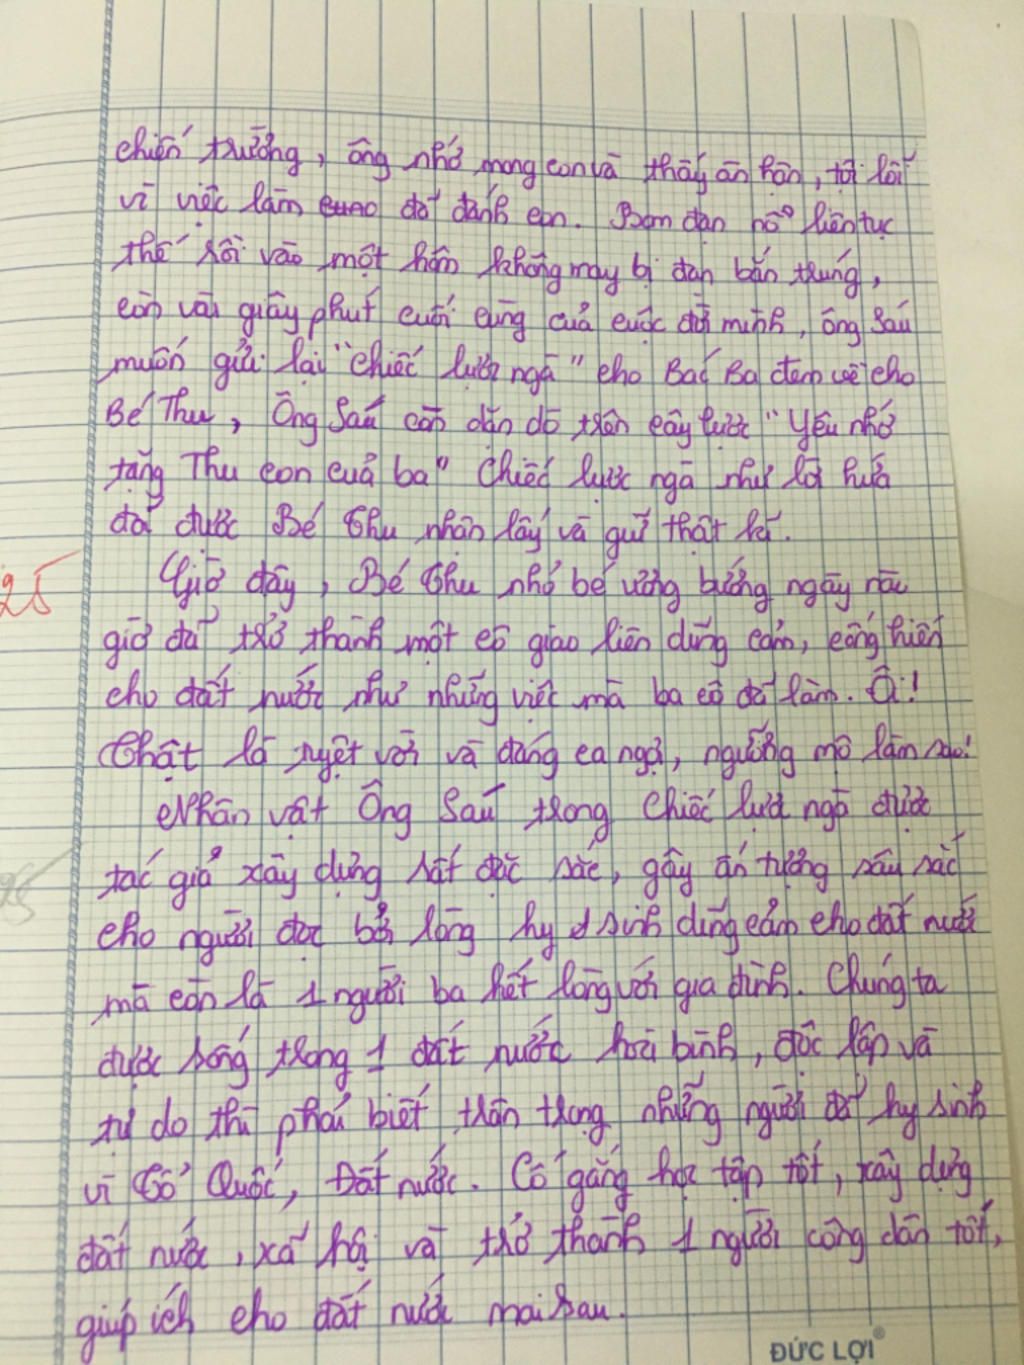 chiến trường, ông nhớ mong con và thấy ân hận, tội lỗi
vì việc làm đã đánh con. Bom đạn nổ liên tục
thế rồi vào một hôm không may bị đạn bắn trúng,
còn vài giây phút cuối cùng của cuộc đời mình, ông Sáu
muốn gửi lại "chiếc lược ngà" cho Bác Ba đem về cho
Bé Thu, Ông Sáu còn dặn dò trên cây lược "Yêu nhớ
tặng Thu con của ba" Chiếc lược ngà như lời hứa
đã được Bé Thu nhận lấy và giữ thật kĩ.
Giờ đây, Bé Thu nhỏ bé ương bướng ngày nào
giờ đã trở thành một cô giao liên dũng cảm, cống hiến
cho đất nước như những việc mà ba cô đã làm. Ôi!
Thật là tuyệt vời và đáng ca ngợi, ngưỡng mộ làm sao!
Nhân vật Ông Sáu trong Chiếc lược ngà được
tác giả xây dựng rất đặc sắc, gây ấn tượng sâu sắc
cho người đọc bởi lòng hy sinh dũng cảm cho đất nước
mà còn là 1 người ba hết lòng với gia đình. Chúng ta
được sống trong 1 đất nước hoà bình, độc lập và
tự do thì phải biết trân trọng những người đã hy sinh
vì Tổ Quốc, Đất nước. Cố gắng học tập tốt, xây dựng
đất nước, xã hội và trở thành 1 người công dân tốt,
giúp ích cho đất nước mai sau.
25
ĐỨC LỢI®